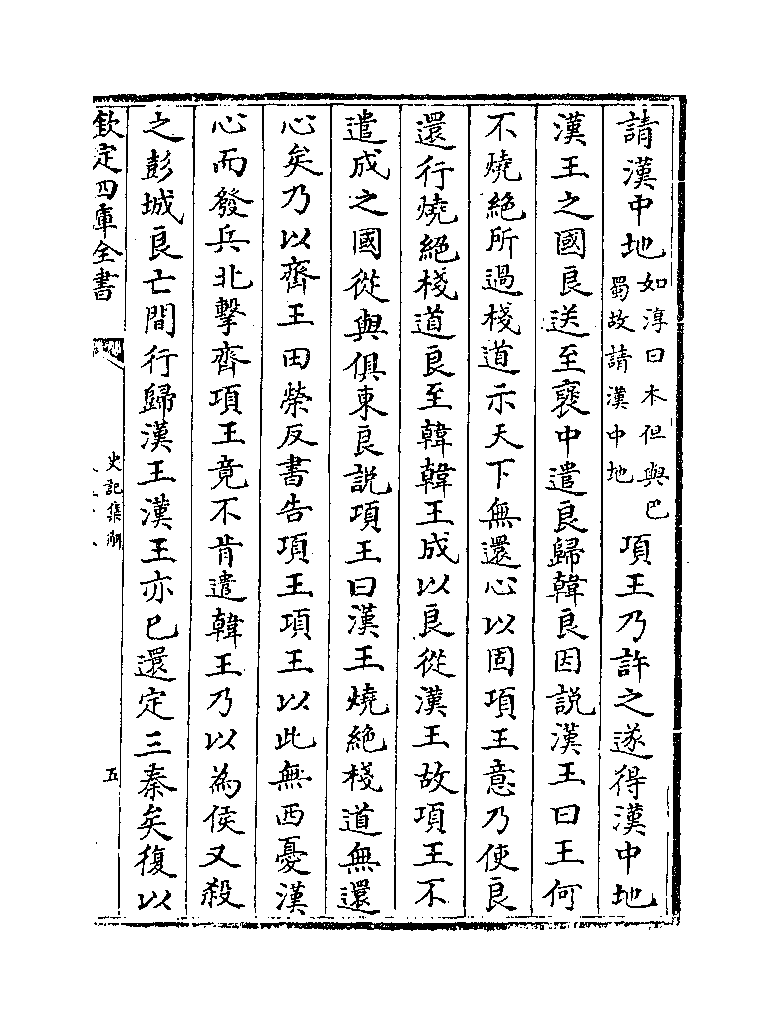 請漢中地如淳曰本但與巴蜀故請漢中地項王乃許之遂得漢中地
漢王之國良送至襃中遣良歸韓良因説漢王曰王何
不燒絶所過棧道示天下無還心以固項王意乃使良
還行燒絕棧道良至韓韓王成以良從漢王故項王不
遣成之國從與俱東良説項王曰漢王燒絶棧道無還
心矣乃以齊王田榮反書告項王項王以此無西憂漢
心而發兵北擊齊項王竟不肯遣韓王乃以為侯又殺
之彭城良亡間行歸漢王漢王亦已還定三秦矣復以
欽定四庫全書
史記集解
五